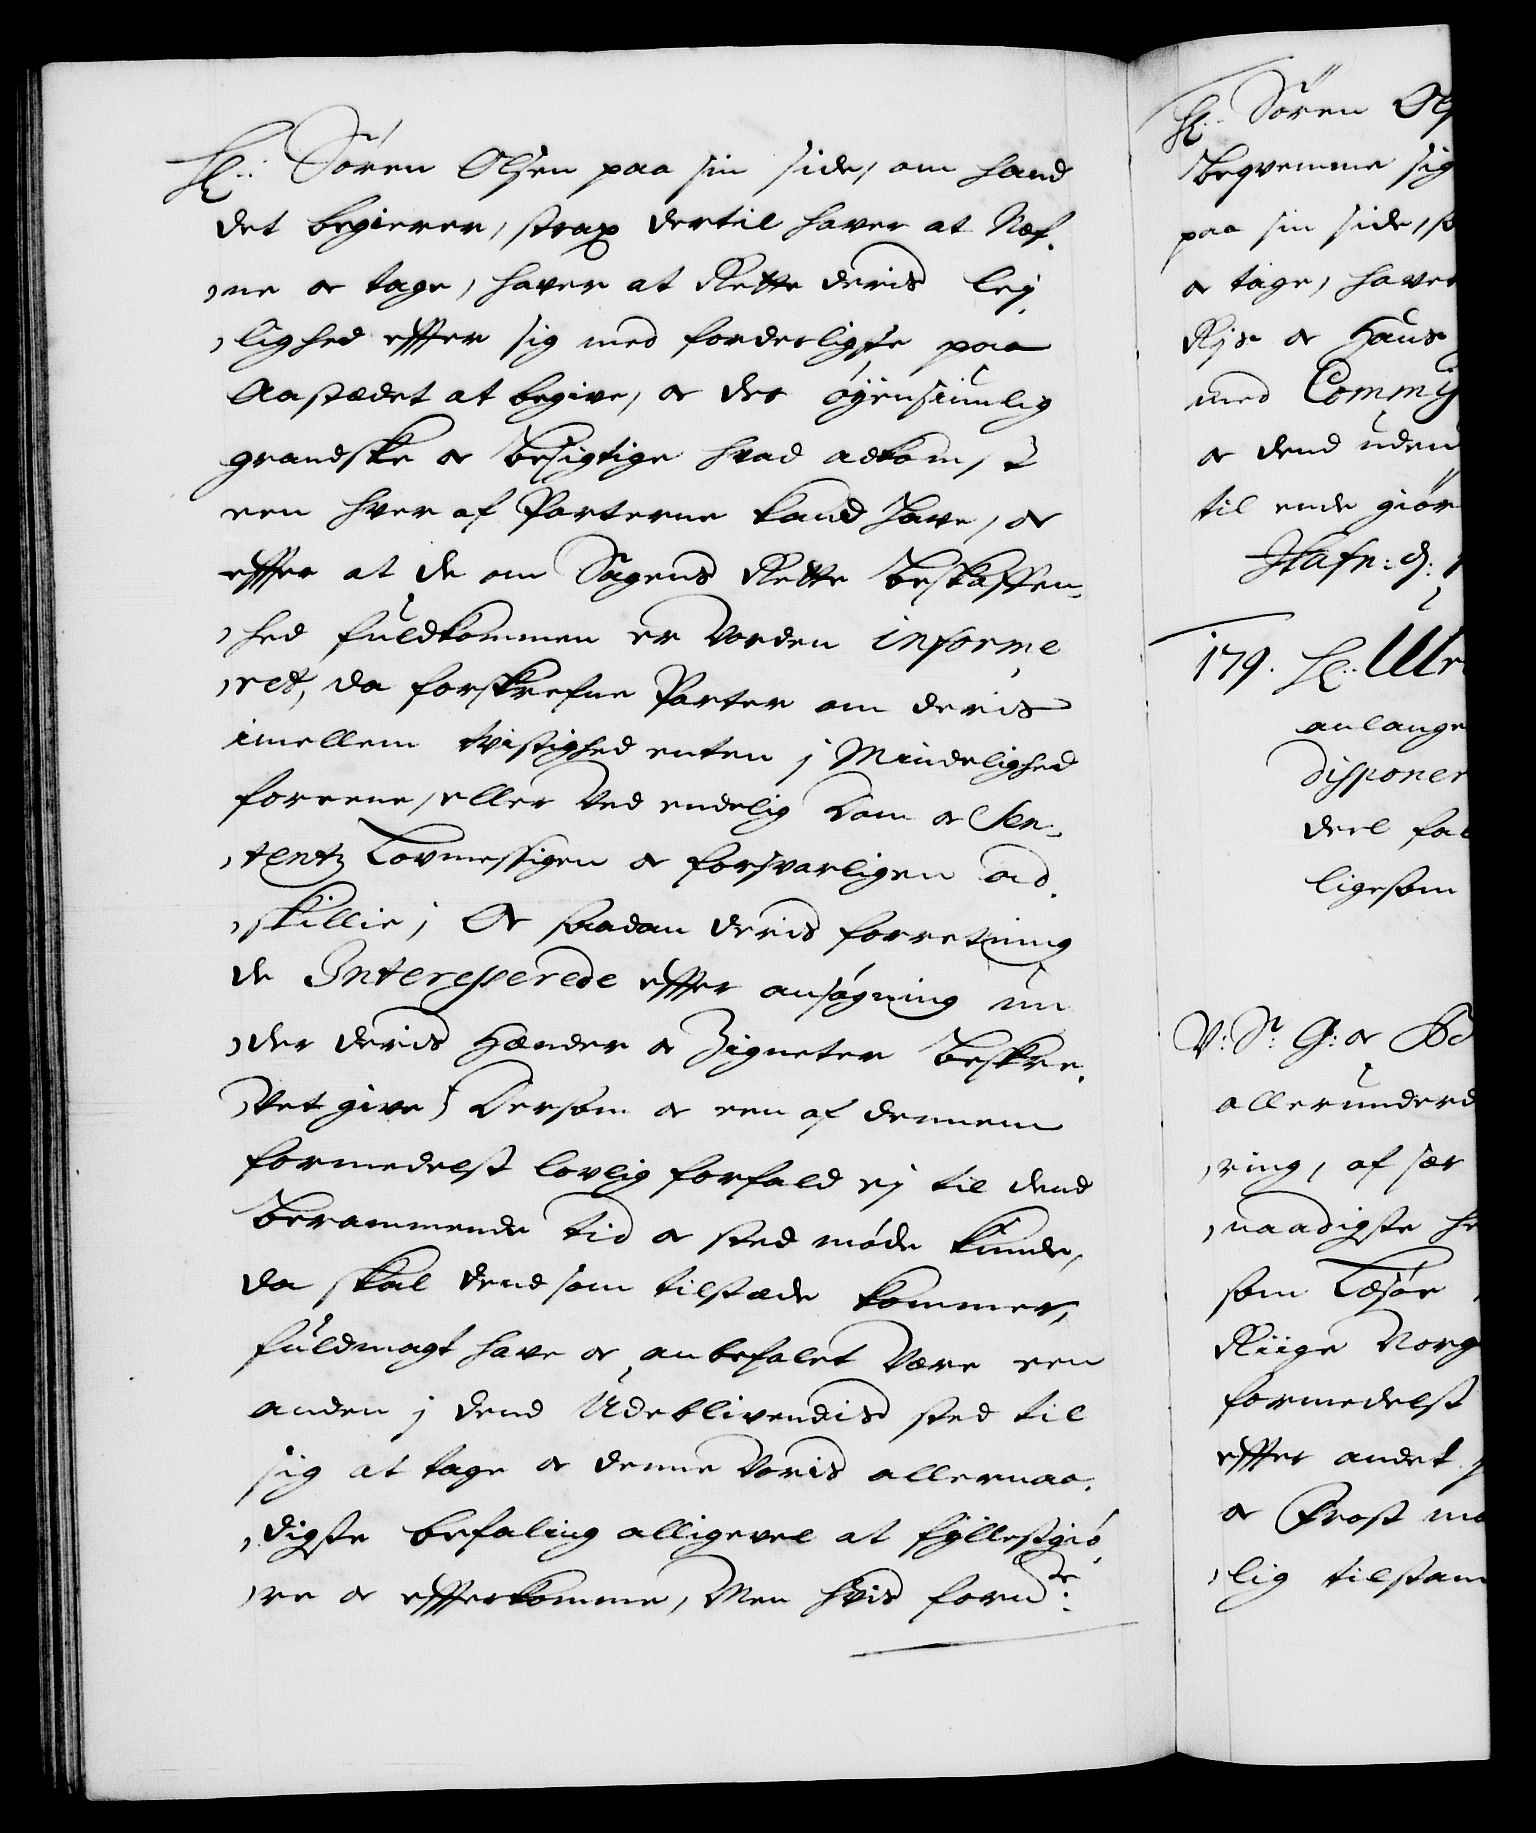 Hr: Søren Olsen paa sin side, om hand
det begierer, strax dertil haver at Næf-
ne og tage, haver at Rette deris lej-
lighed effter sig med forderligste paa
Aastædet at begive, og der øyensiunlig
grandske og besigtige hvad adkomst
een hver af Parterne kand have, og
effter at de om Sagens Rette beskaffen-
hed fuldkommen er vorden informe-
ret, da forskrefne Parter om deris
imellem tvistighed enten j Mindelighed
foreene, eller ved endelig Dom og Sen-
tentz Lovmessigen og forsvarligen ad-
skillie; Og saadan deris forretning
de Interesserede effter ansøgning un-
der deris Hænder og Zigneter beskre-
vet give; Dersom og een af dennem
formedelst lovlig forfald ej til dend
berammende tid og sted møde kunde,
da skal dend som tilstæde kommer,
fuldmagt have og anbefalet være een
anden j dend Udeblivendis sted til
sig at tage og denne voris allernaa-
digste befaling alligevel at fyllestgiø-
re og effterkomme, Men hvis fornte:
Hr: Søren Ols
beqvemme sig
paa sin side, s
og tage, haver
Rjse og Hans
med Commis
og dend uden
til ende giør
Hafn: d:
179. Hr: Ulr
anlange
disponer
deel fal
ligesom
V: Sr: G: og
allerunderd
ring, af sær
naadigste
som Læsøe
Riige Norg
formedelst
effter andet
og Frost
lig tilstan